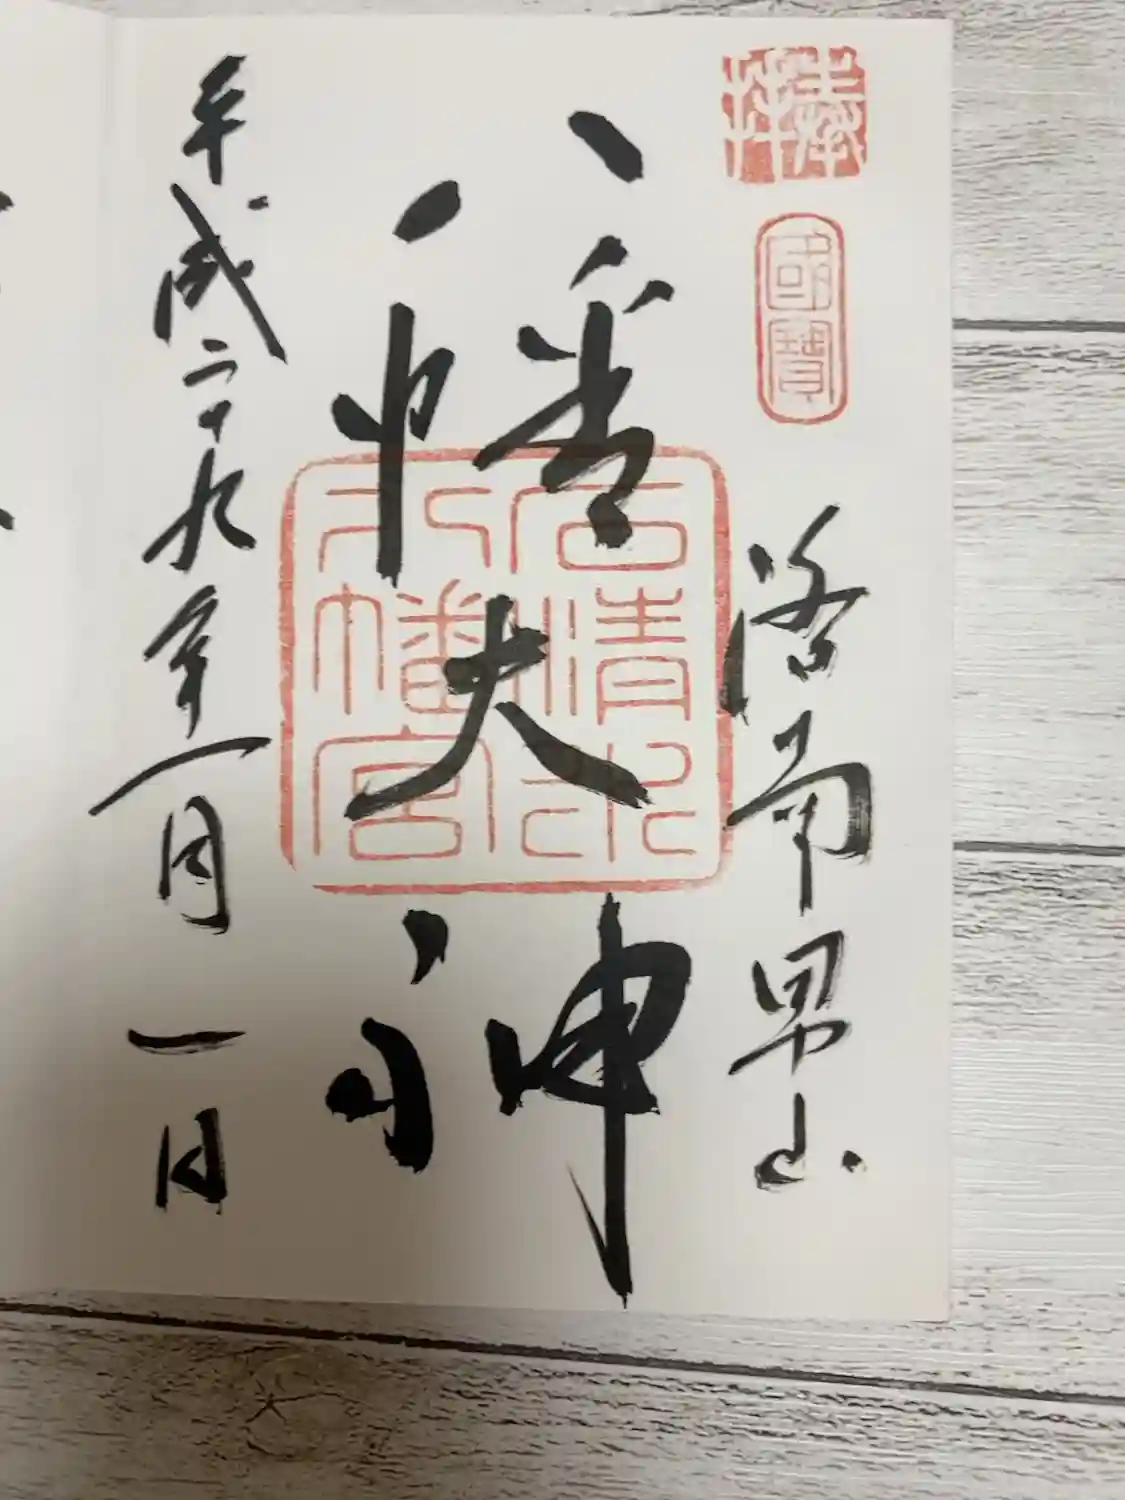 奉拝
國寶
洛南男山
八幡大神
石清水
八幡宮
平成二十九年一月一日